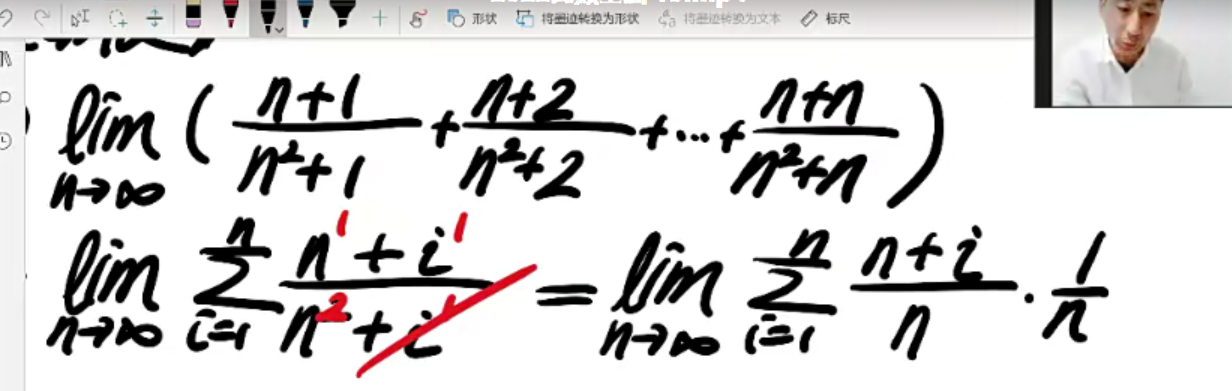 形状 将墨迹转换为形状 将墨迹转换为文本 标尺
lim n→∞ ( (n+1)/(n²+1) + (n+2)/(n²+2) + ··· + (n+n)/(n²+n) )
lim n→∞ Σ i=1 n (n¹+i¹)/(n²+i¹) = lim n→∞ Σ i=1 n (n+i)/n · 1/n